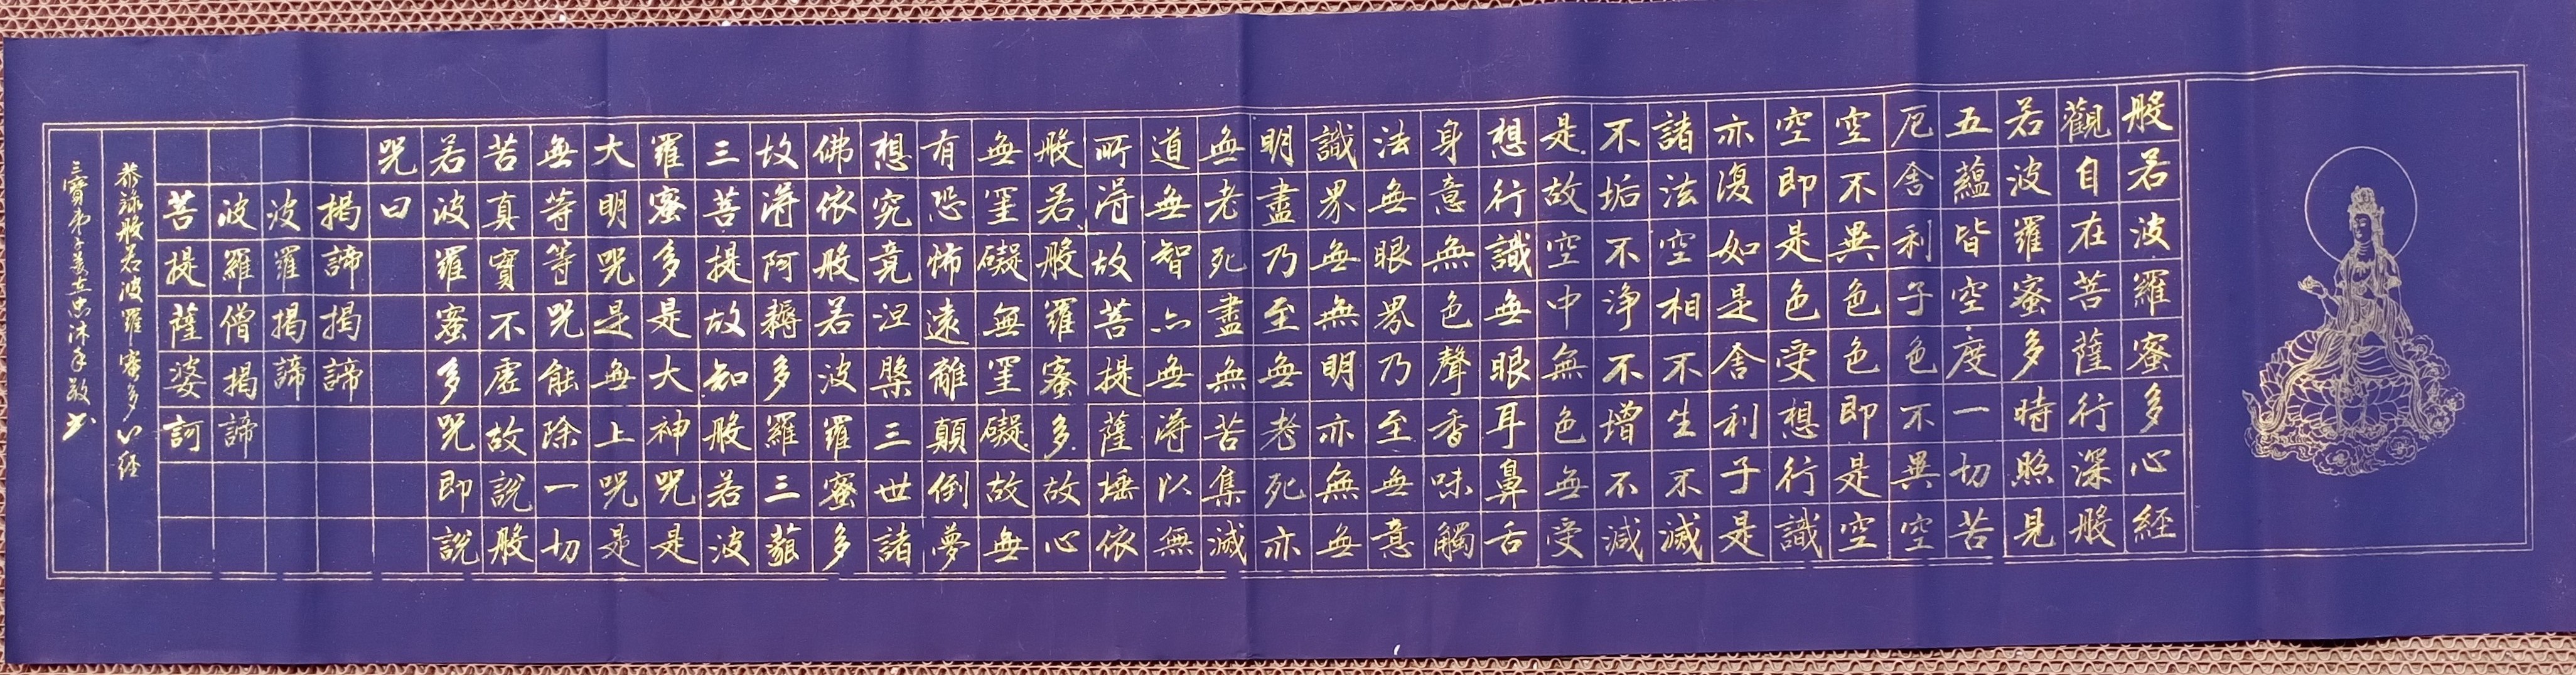 般若波羅蜜多心経
觀自在菩薩行深般
若波羅蜜多時照見
五蘊皆空度一切苦
厄舍利子色不異空
空不異色色即是空
空即是色受想行識
亦復如是舍利子是
諸法空相不生不滅
不垢不淨不增不減
是故空中無色無受
想行識無眼耳鼻舌
身意無色聲香味觸
法無眼界乃至無意
識界無無明亦無無
明盡乃至無老死亦
無老死盡無苦集滅
道無智亦無得以無
所得故菩提薩埵依
般若般羅蜜多故心
無罣礙無罣礙故無
有恐怖遠離顛倒夢
想究竟涅槃三世諸
佛依般若波羅蜜多
故得阿耨多羅三藐
三菩提故知般若波
羅蜜多是大神咒是
大明咒是無上咒是
無等等咒能除一切
苦真實不虛故說般
若波羅蜜多咒即說
咒曰
揭諦揭諦
波羅揭諦
波羅僧揭諦
菩提薩婆訶
恭録般若波羅蜜多心经
三寶弟子姜忠沐手敬书